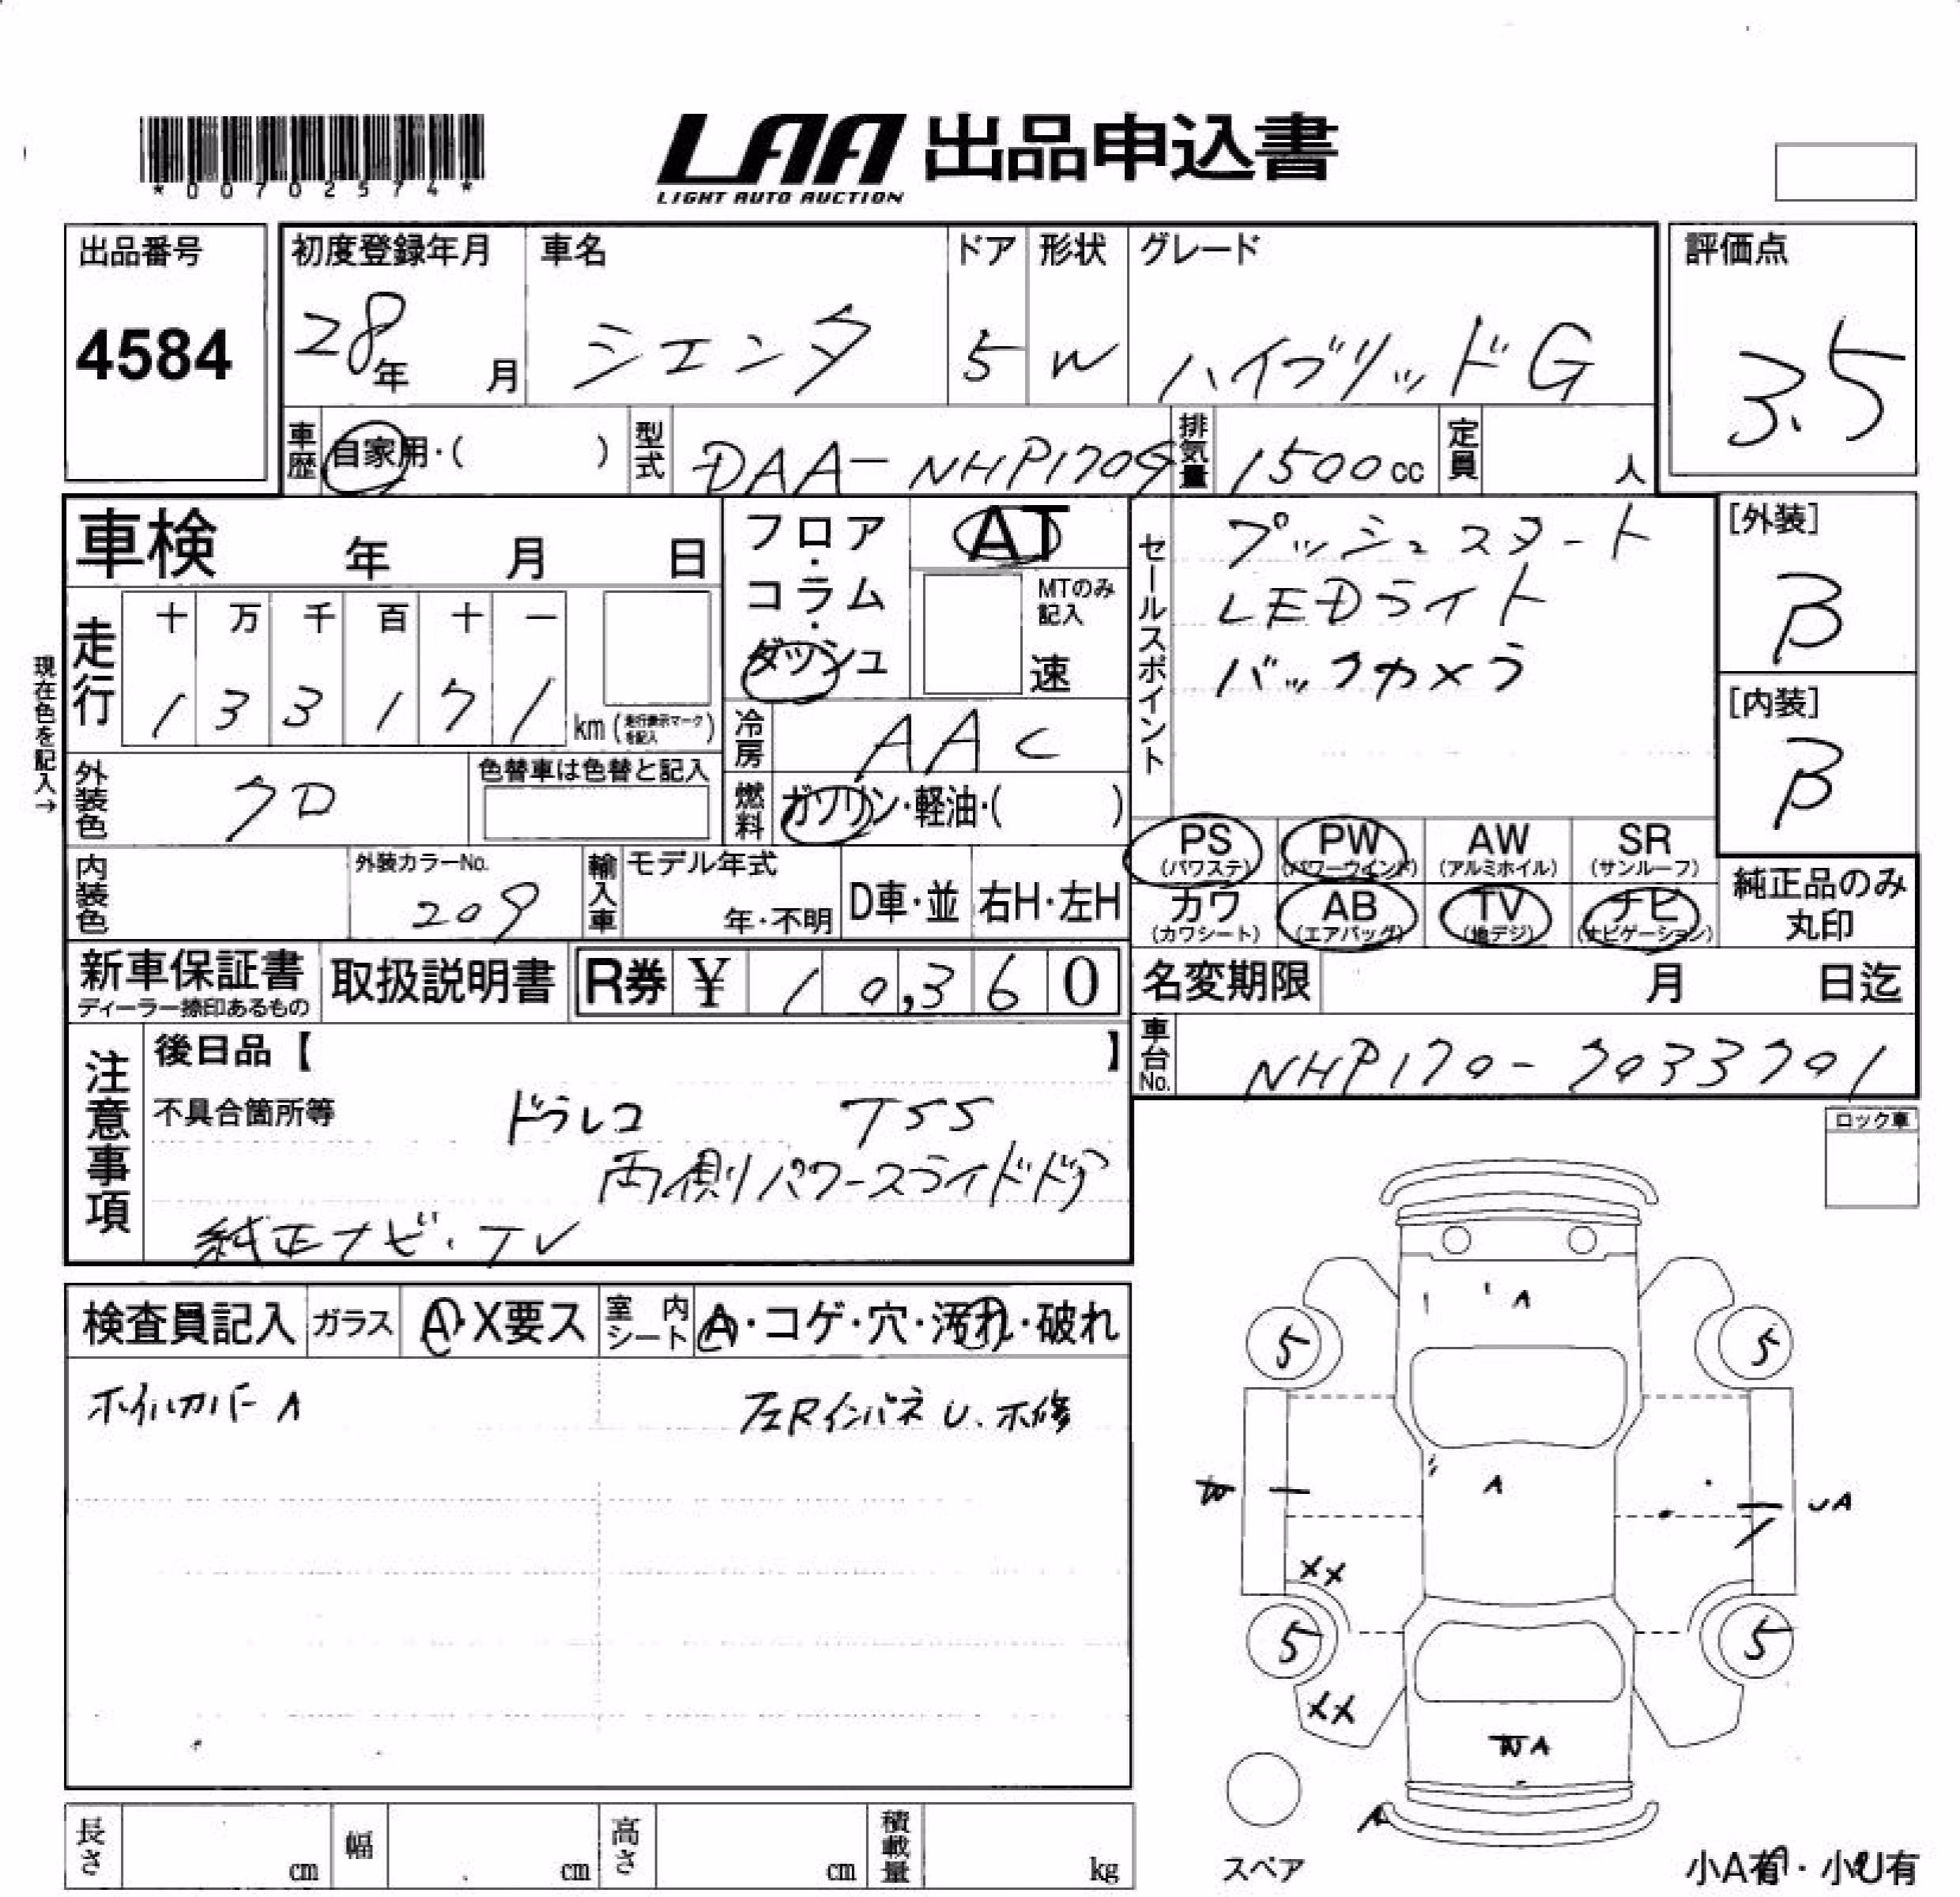 *00702574*
LAA 出品申込書
LIGHT AUTO AUCTION
出品番号
4584
初度登録年月
28年 月
車名
シエンタ
ドア
5
形状
W
グレード
ハイブリッドG
評価点
3.5
車歴
自家用・( )
型式
DAA-NHP170G
排気量
1500cc
定員
人
車検 年 月 日
フロア・コラム・ダッシュ
AT
MTのみ記入
速
セールスポイント
プッシュスタート
LEDライト
バックカメラ
[外装]
B
[内装]
B
現在色を記入→
走行
十 万 千 百 十 一
1 3 3 1 7 1
km (走行表示マークを記入)
冷房
AAC
外装色
クロ
色替車は色替と記入
燃料
ガソリン・軽油・( )
PS (パワステ)
PW (パワーウインド)
AW (アルミホイル)
SR (サンルーフ)
カワ (カワシート)
AB (エアバッグ)
TV (地デジ)
ナビ (ナビゲーション)
純正品のみ丸印
内装色
外装カラーNo.
209
輸入車
モデル年式
年・不明
D車・並
右H・左H
新車保証書
ディーラー捺印あるもの
取扱説明書
R券 ¥ 10,360
名変期限 月 日迄
車台No.
NHP170-7033701
注意事項
後日品【 】
不具合箇所等
ドラレコ TSS
両側パワースライドドア
純正ナビ・TV
ロック車
検査員記入
ガラス
A・X要ス
室内シート
A・コゲ・穴・汚れ・破れ
ホイルカバーA
左Rインパネ U、ホ修
A
5 5
A
UA
XX
5 5
XX
A
スペア
小A有・小U有
長さ cm
幅 cm
高さ cm
積載量 kg